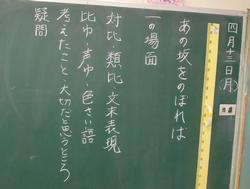 四月十三日(月)
あの坂をのぼれば
一の場面
対比・類比・文末表現
比ゆ・声ゆ・色さい語
考えたこと・大切だと思うところ
疑問